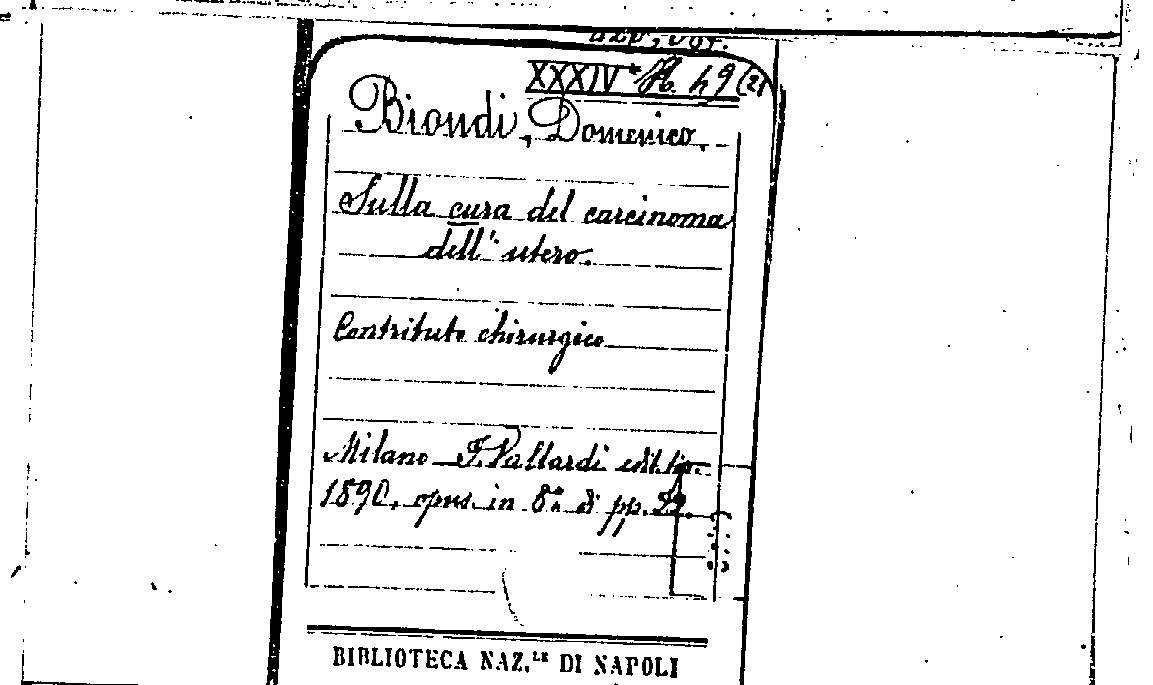 XXXIV A. 49 (21
Biondi, Domenico.
Sulla cura del carcinoma
dell' utero.
Contributo chirurgico
Milano F. Vallardi edit. tip.
1890. opus. in 8.° di pp. 29.
BIBLIOTECA NAZ.LE DI NAPOLI